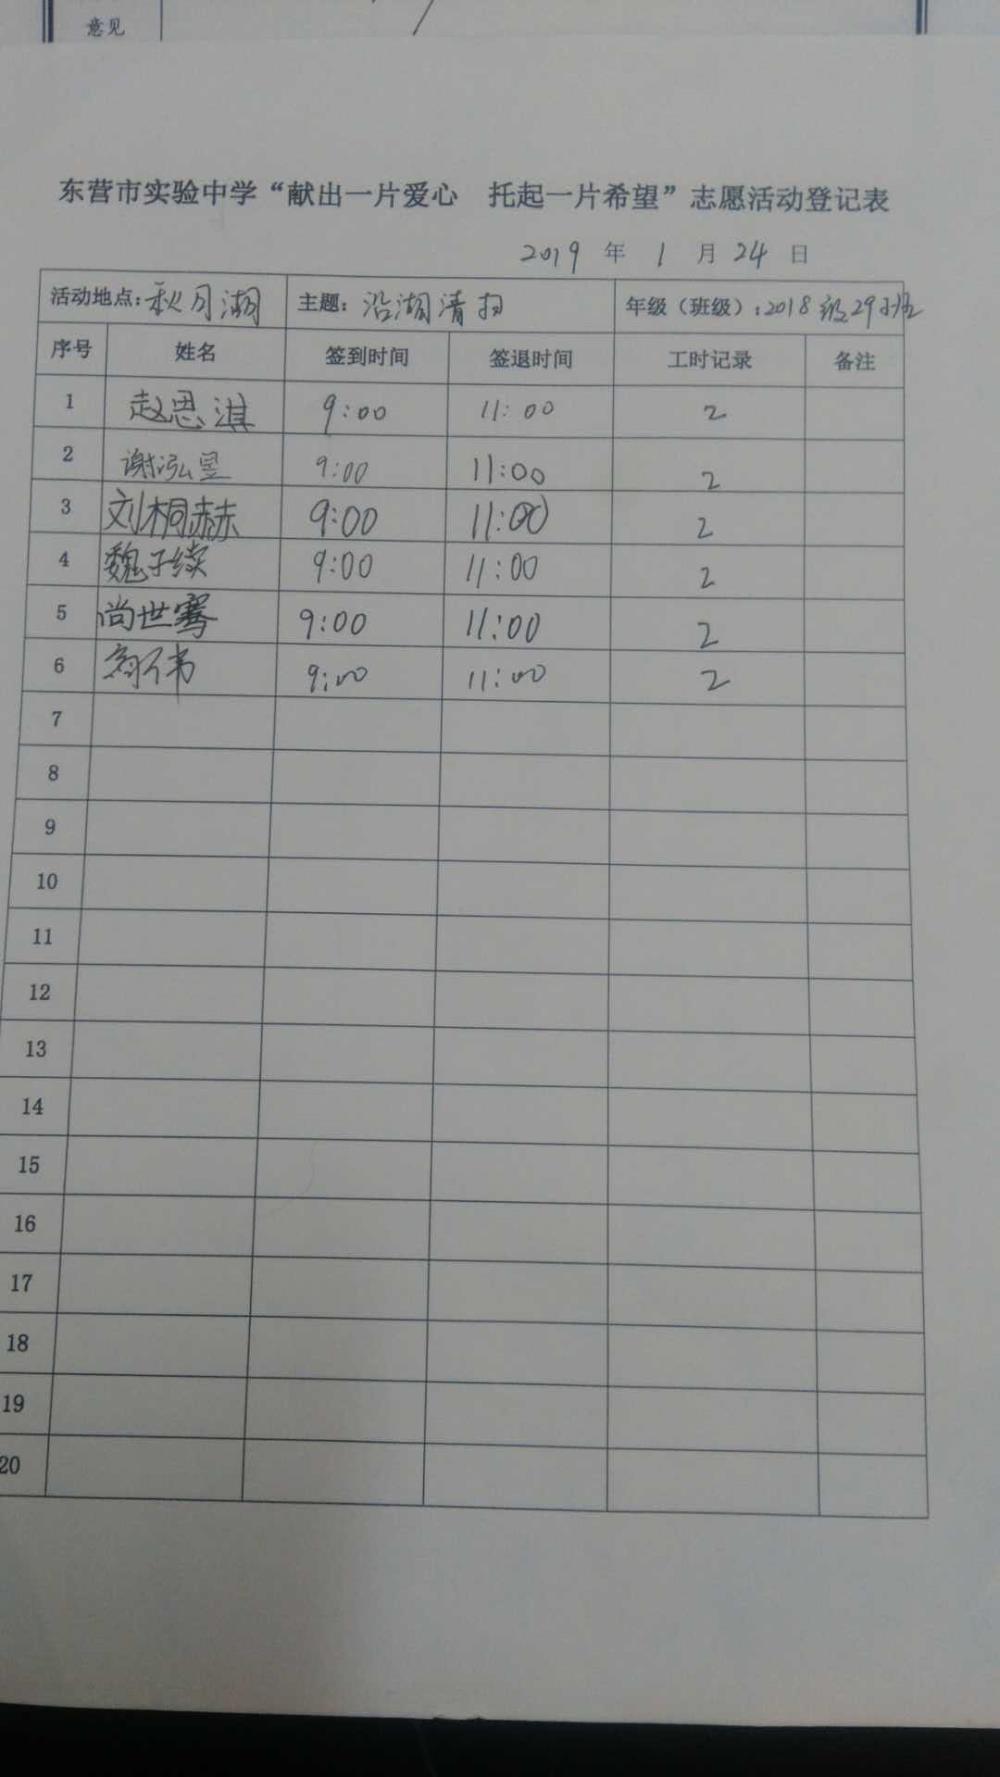 意见
东营市实验中学“献出一片爱心 托起一片希望”志愿活动登记表
2019 年 1 月 24 日
活动地点：秋月湖 主题：沿湖清扫 年级（班级）：2018级29班
序号 姓名 签到时间 签退时间 工时记录 备注
1 赵思淇 9:00 11:00 2
2 谢泓昱 9:00 11:00 2
3 刘桐赫 9:00 11:00 2
4 魏子续 9:00 11:00 2
5 尚世骞 9:00 11:00 2
6 9:00 11:00 2
7
8
9
10
11
12
13
14
15
16
17
18
19
20